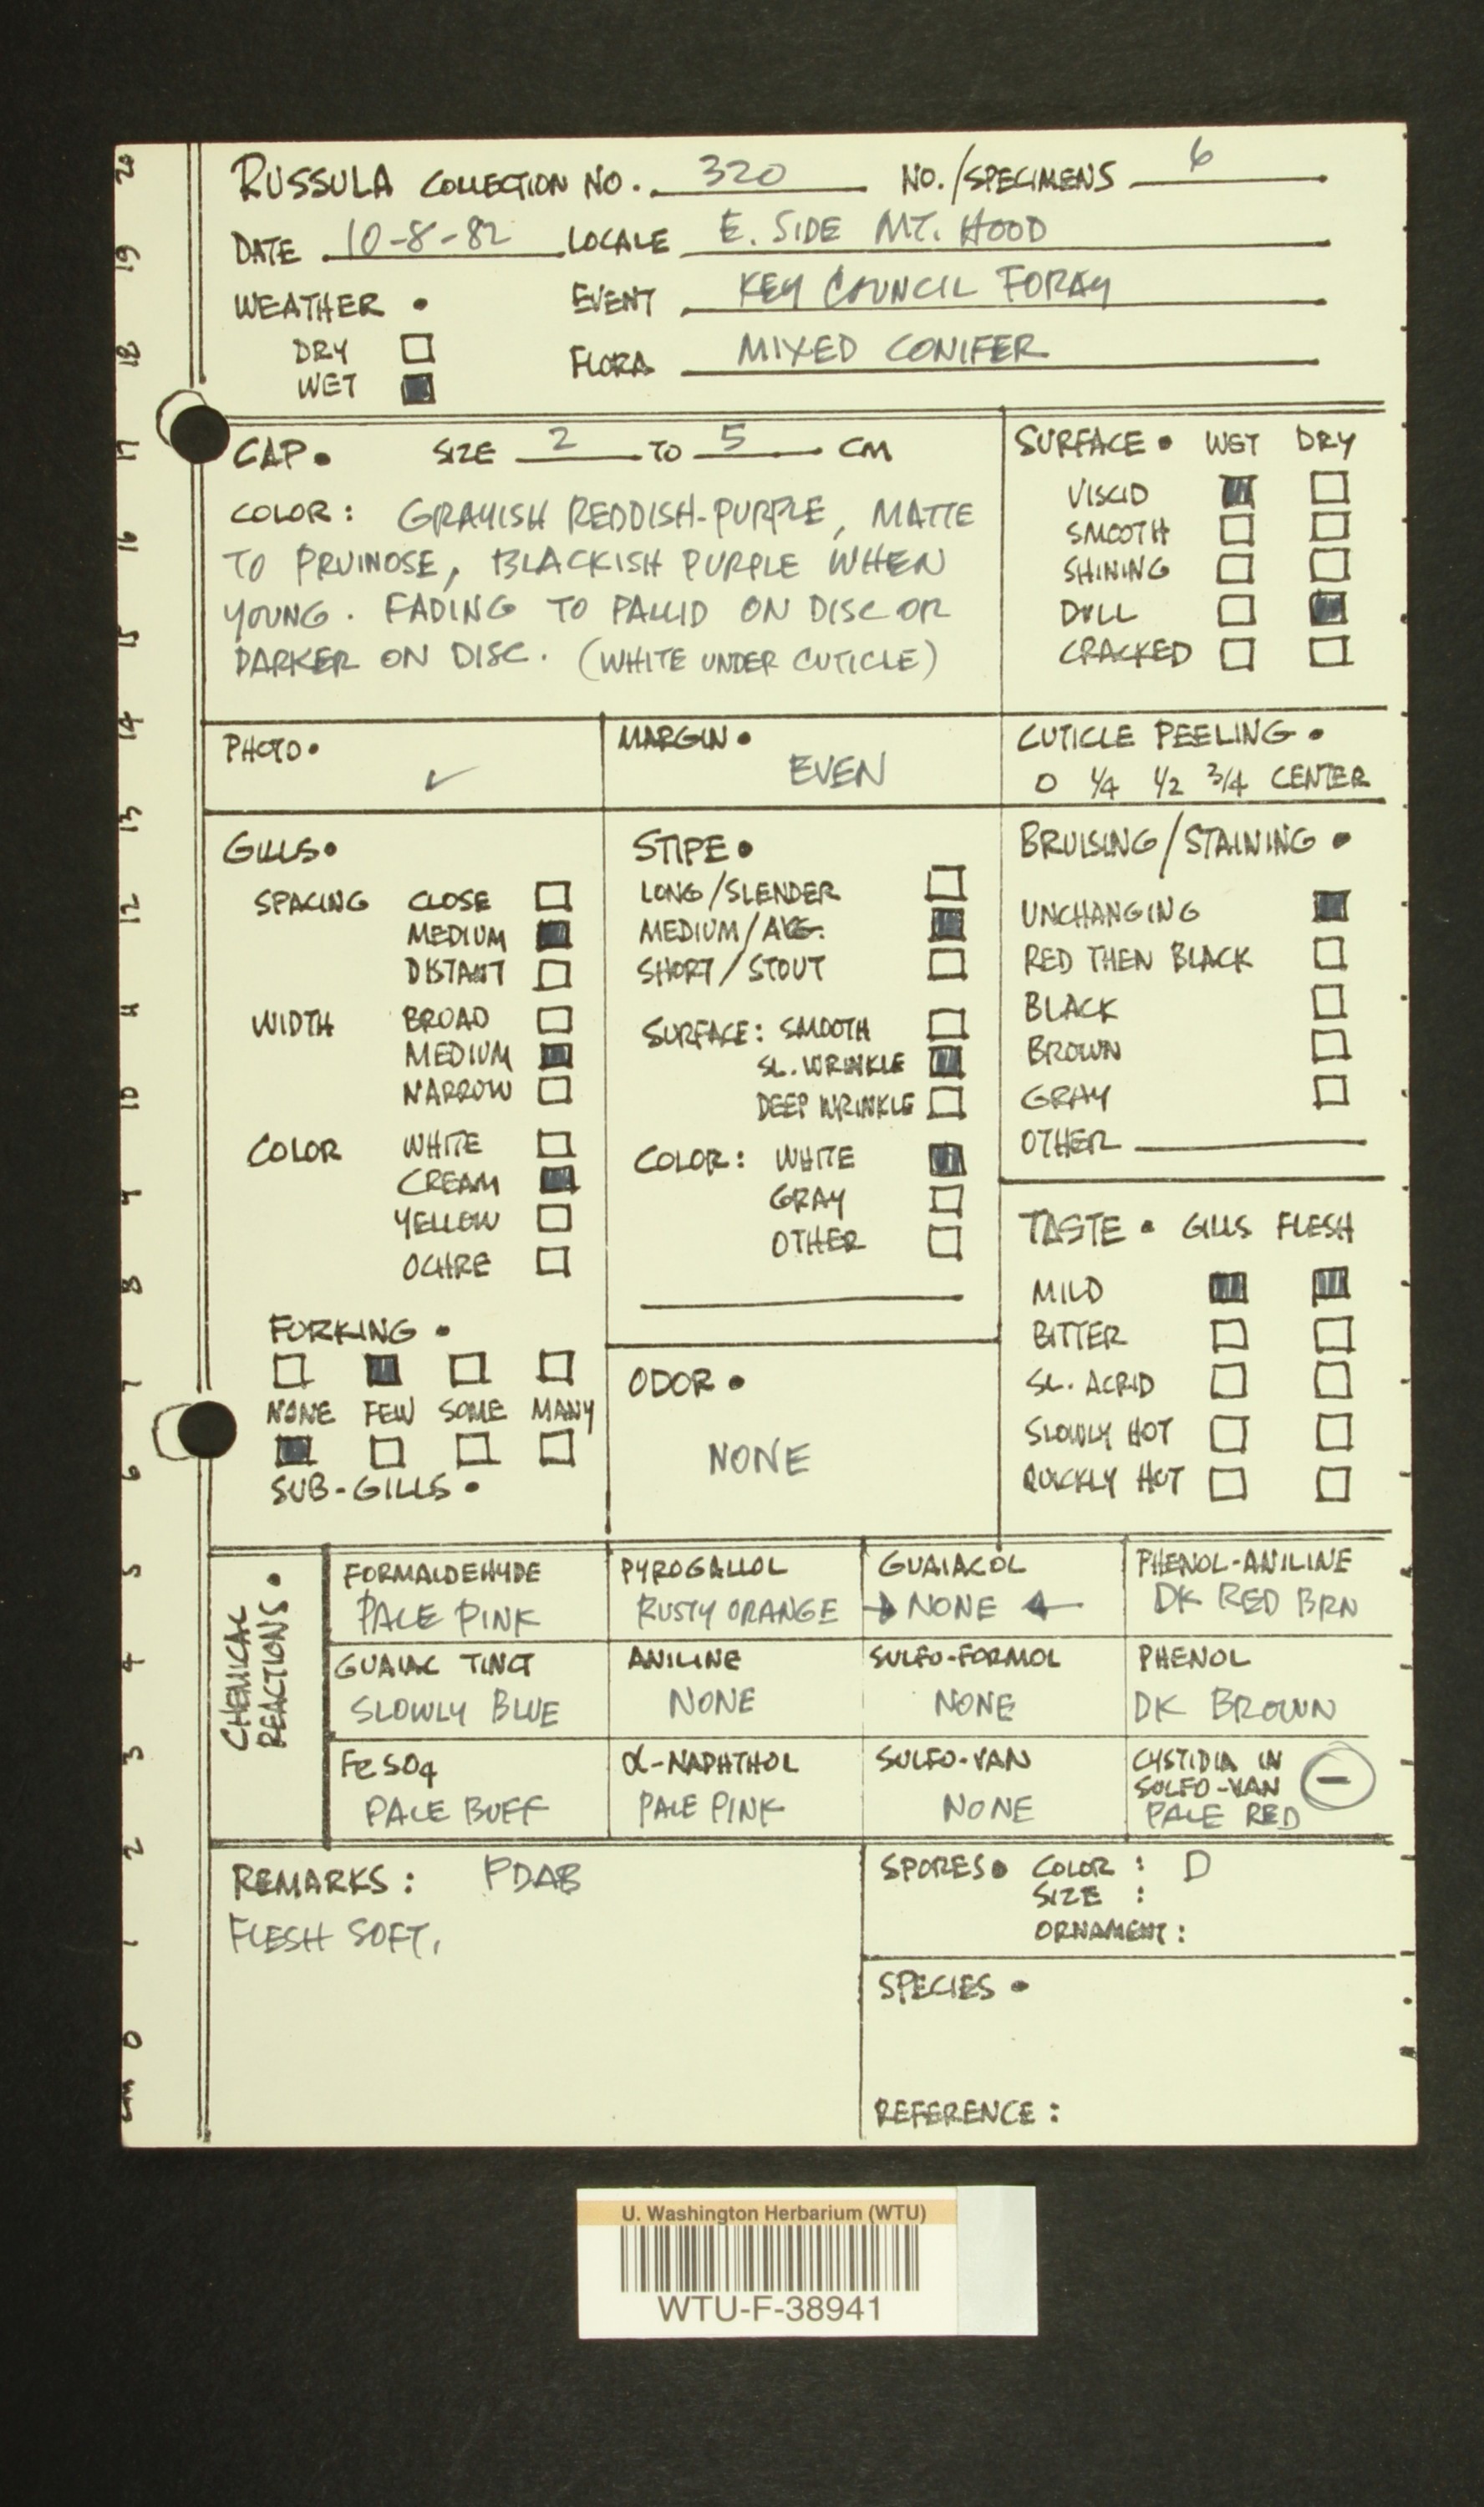 RUSSULA COLLECTION NO. 320 NO./SPECIMENS 6
DATE 10-8-82 LOCALE E. SIDE MT. HOOD
WEATHER • EVENT KEY COUNCIL FORAY
DRY
WET
FLORA MIXED CONIFER
CAP • SIZE 2 TO 5 CM
COLOR: GRAYISH REDDISH-PURPLE, MATTE
TO PRUINOSE, BLACKISH PURPLE WHEN
YOUNG. FADING TO PALLID ON DISC OR
DARKER ON DISC. (WHITE UNDER CUTICLE)
SURFACE • WET DRY
VISCID
SMOOTH
SHINING
DULL
CRACKED
PHOTO • ✓
MARGIN •
EVEN
CUTICLE PEELING •
0 1/4 1/2 3/4 CENTER
GILLS •
SPACING CLOSE
MEDIUM
DISTANT
WIDTH BROAD
MEDIUM
NARROW
COLOR WHITE
CREAM
YELLOW
OCHRE
FORKING •
NONE FEW SOME MANY
SUB-GILLS •
STIPE •
LONG/SLENDER
MEDIUM/AVG.
SHORT/STOUT
SURFACE: SMOOTH
SL. WRINKLE
DEEP WRINKLE
COLOR: WHITE
GRAY
OTHER
ODOR •
NONE
BRUISING/STAINING •
UNCHANGING
RED THEN BLACK
BLACK
BROWN
GRAY
OTHER
TASTE • GILLS FLESH
MILD
BITTER
SL. ACRID
SLOWLY HOT
QUICKLY HOT
CHEMICAL
REACTIONS •
FORMALDEHYDE
PALE PINK
PYROGALLOL
RUSTY ORANGE
GUAIACOL
→ NONE ←
PHENOL-ANILINE
DK RED BRN
GUAIAC TINCT
SLOWLY BLUE
ANILINE
NONE
SULFO-FORMOL
NONE
PHENOL
DK BROWN
FeSO4
PALE BUFF
α-NAPHTHOL
PALE PINK
SULFO-VAN
NONE
CYSTIDIA IN
SULFO-VAN –
PALE RED
REMARKS: PDAB
FLESH SOFT.
SPORES • COLOR: D
SIZE:
ORNAMENT:
SPECIES •
REFERENCE:
20
19
18
17
16
15
14
13
12
11
10
9
8
7
6
5
4
3
2
1
0
cm
U. Washington Herbarium (WTU)
WTU-F-38941